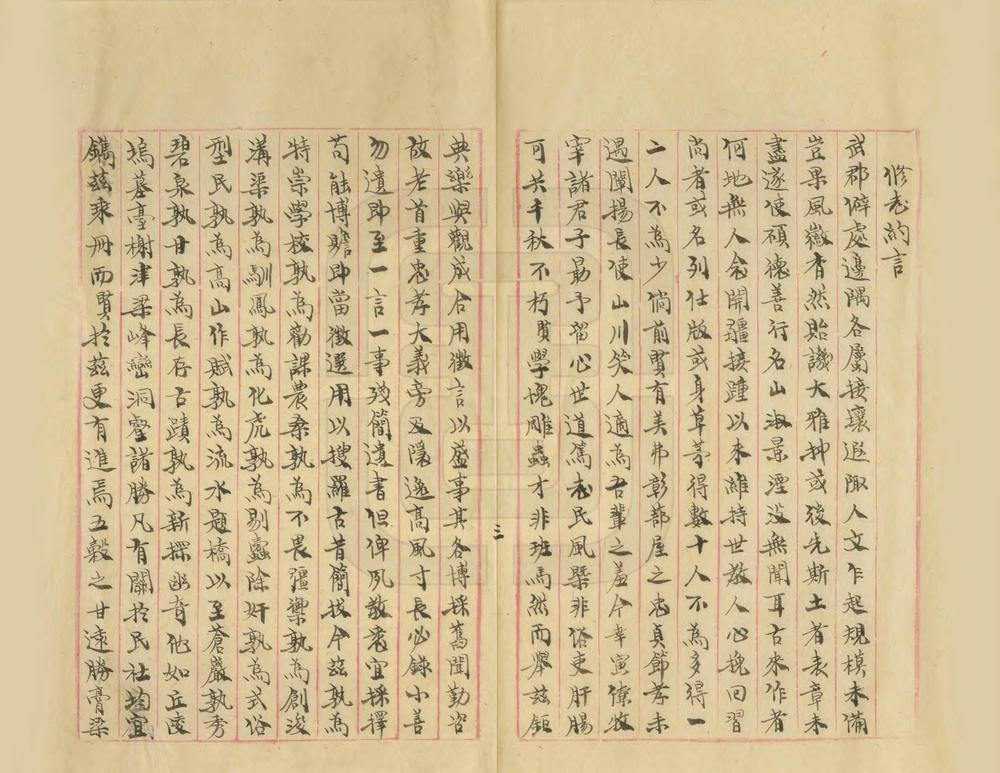 修志約言
武郡僻處邊隅各屬接壤遐陬人文乍起規模未備
豈果風徽杳然貽譏大雅抑或後先斯土者表章未
盡遂使碩德善行名山淑景湮沒無聞耳古來作者
何地無人念開疆接踵以來維持世教人心挽回習
尚者或名列仕版或身草茅得數十人不為多得一
二人不為少倘前賢有美弗彰蔀屋之忠貞節孝未
遇闡揚長使山川笑人適為吾輩之羞今幸寅僚牧
宰諸君子勗予留心世道篤志民風槩非俗吏肝腸
可共千秋不朽賢學愧雕蟲才非班馬然而舉茲鉅
典樂與觀成合用徵言以蕆事其各博採舊聞勤咨
故老首重忠孝大義旁及隱逸高風寸長必錄小善
勿遺即至一言一事殘簡遺書但俾夙教衷宜採擇
苟能博瞻即當徵選用以搜羅古昔簡拔今茲孰為
特崇學校孰為勸課農桑孰為不畏彊禦孰為創浚
溝渠孰為馴鳳孰為化虎孰為剔蠹除奸孰為式俗
型民孰為高山作賦孰為流水題橋以至蒼巖孰秀
碧泉孰甘孰為長存古蹟孰為新探幽奇他如丘陵
塢墓臺榭津梁峰巒洞壑諸勝凡有關於民社均宜
鐫茲乘冊而賢於茲更有進焉五穀之甘遠勝膏粱
三